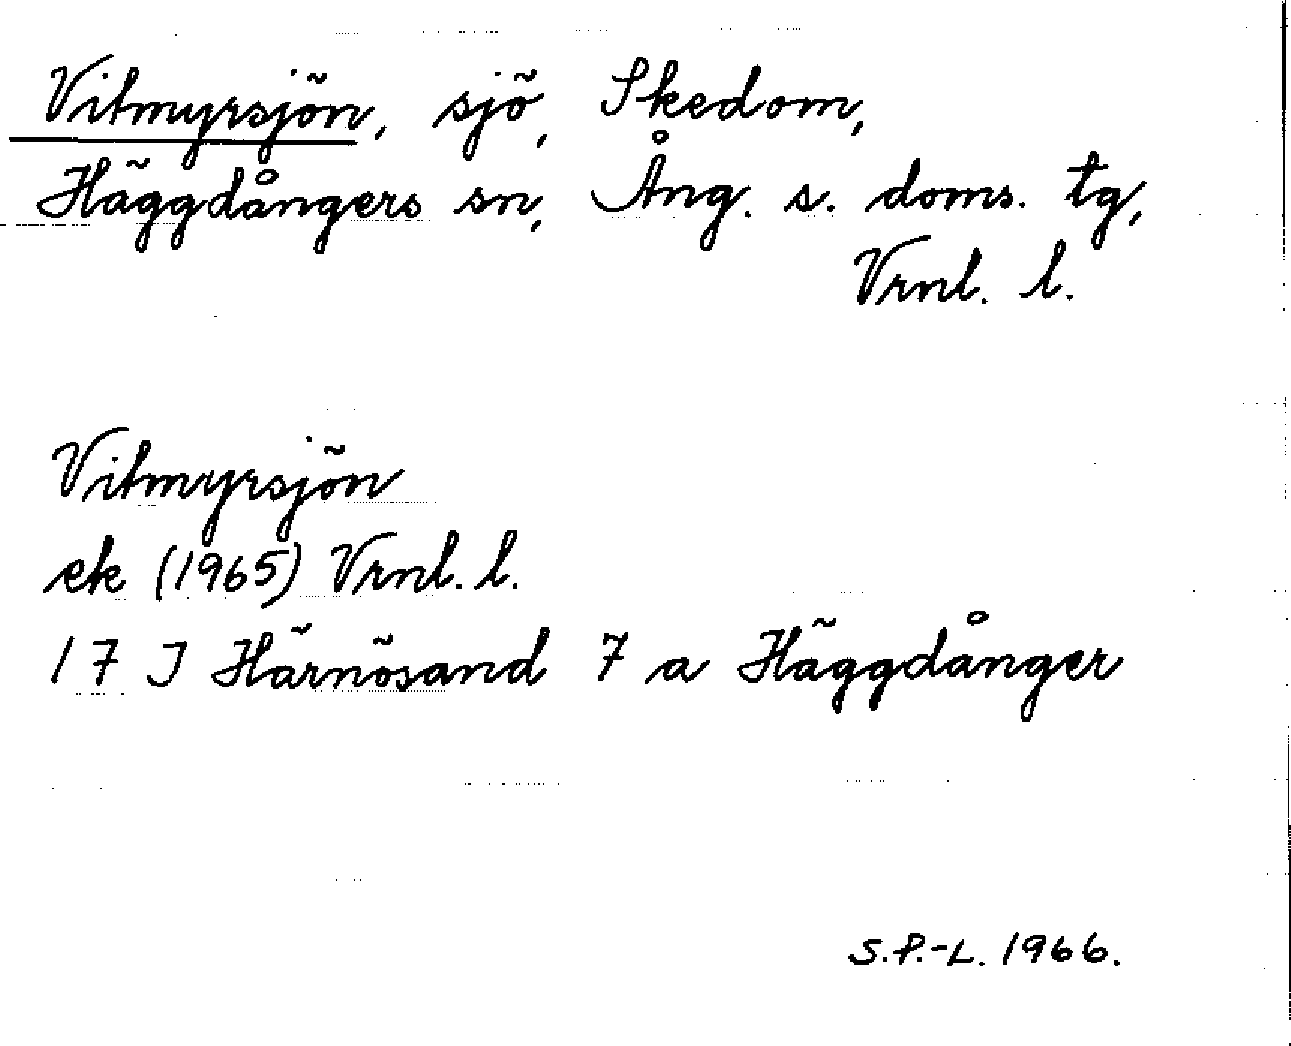 Vitmyrsjön, sjö, Skedom,
Häggdångers sn, Ång. s. doms. tg,
Vrnl. l.
Vitmyrsjön
ek (1965) Vrnl. l.
17 I Härnösand 7 a Häggdånger
S.P.-L. 1966.